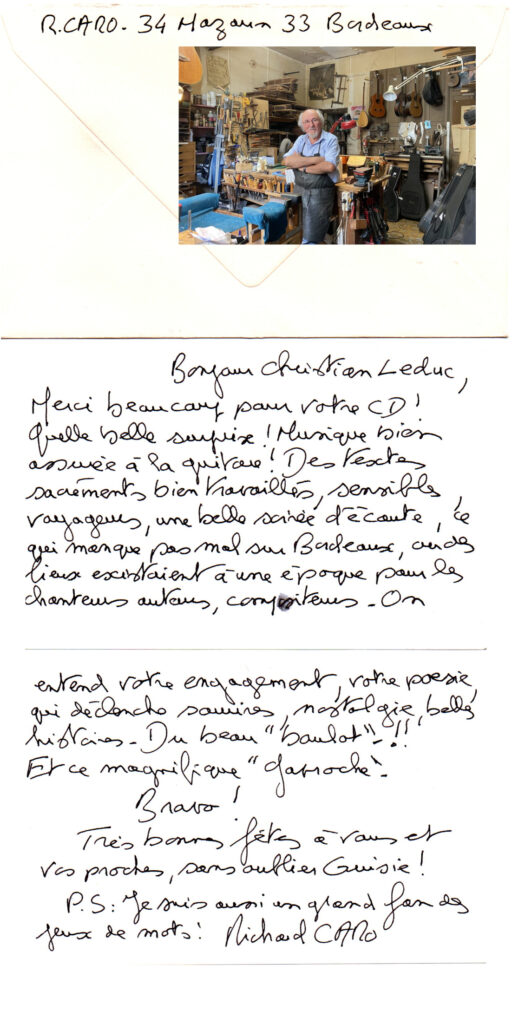 R.CARO - 34 Mazarin 33 Bordeaux
Bonjour Christian Leduc,
Merci beaucoup pour votre CD!
Quelle belle surprise! Musique bien
assurée à la guitare! Des textes
sacréments bien travaillés, sensibles,
voyageurs, une belle soirée d'écoute, ce
qui manque pas mal sur Bordeaux, où des
lieux existaient à une époque pour les
chanteurs auteurs, compositeurs - On
entend votre engagement, votre poésie,
qui déclenche sourires, nostalgie, belles
histoires - Du beau "boulot" - !!
Et ce magnifique "Gavroche" -
Bravo!
Très bonnes fêtes à vous et
vos proches, sans oublier Guisie!
P.S: Je suis aussi un grand fan des
jeux de mots! Richard CARO